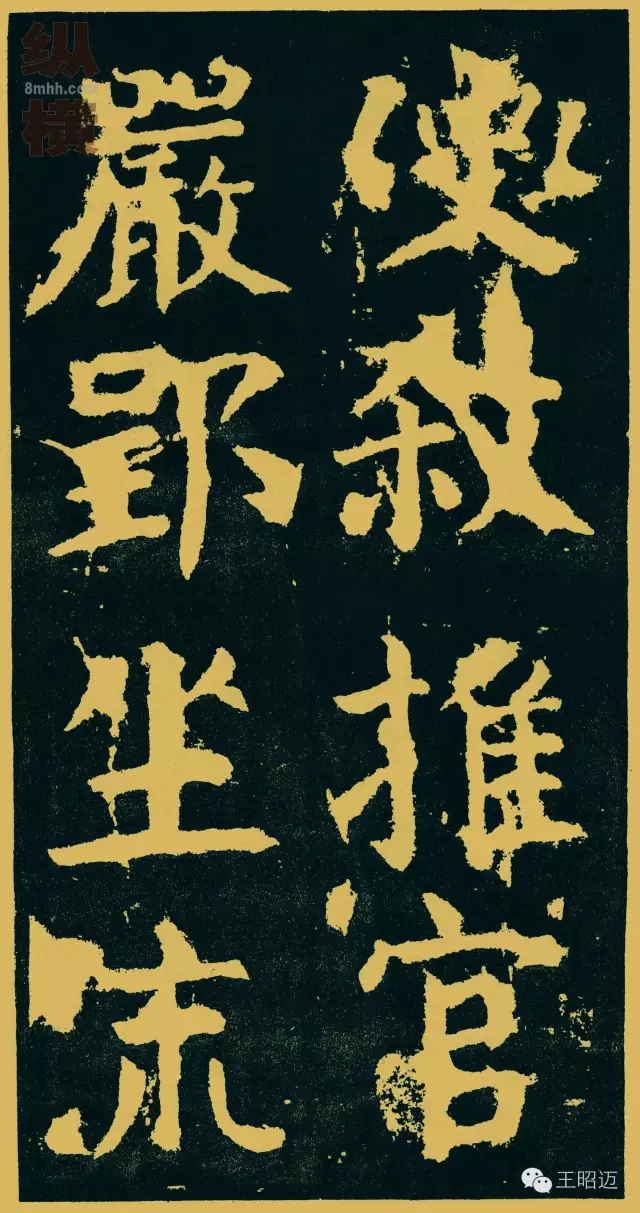 決殺推官
嚴郢坐流
纵横
8mhh.com
王昭迈